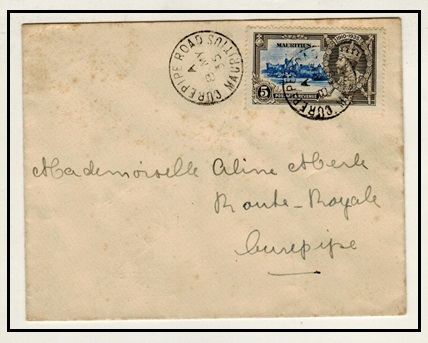 CUREPIPE ROAD MAURITIUS
A
MY 8
35
MAURITIUS
1910-1935
5
POSTAGE & REVENUE
Mademoiselle Aline Merle
Route-Royale
Curepipe